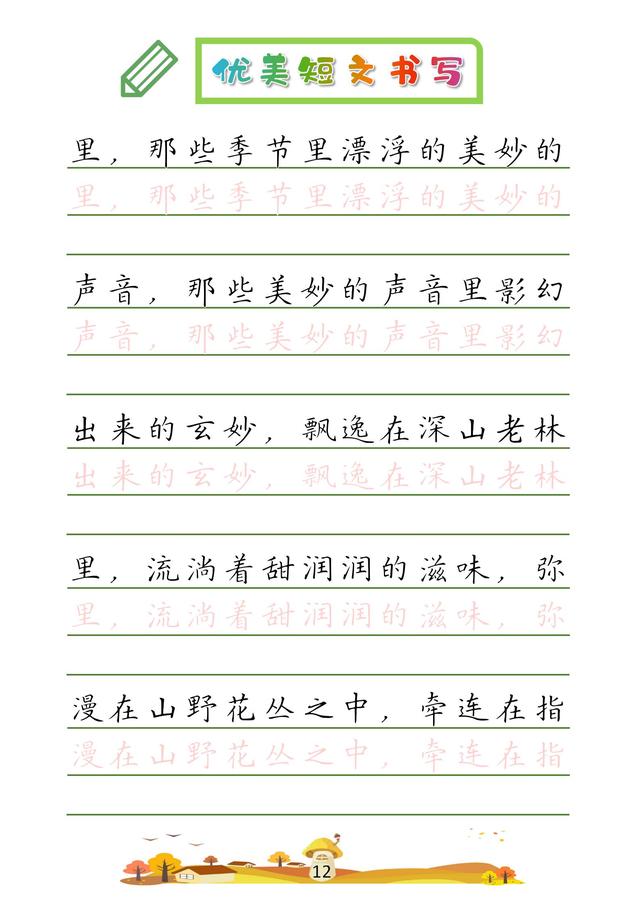 优美短文书写
里，那些季节里漂浮的美妙的
里，那些季节里漂浮的美妙的
声音，那些美妙的声音里影幻
声音，那些美妙的声音里影幻
出来的玄妙，飘逸在深山老林
出来的玄妙，飘逸在深山老林
里，流淌着甜润润的滋味，弥
里，流淌着甜润润的滋味，弥
漫在山野花丛之中，牵连在指
漫在山野花丛之中，牵连在指
12